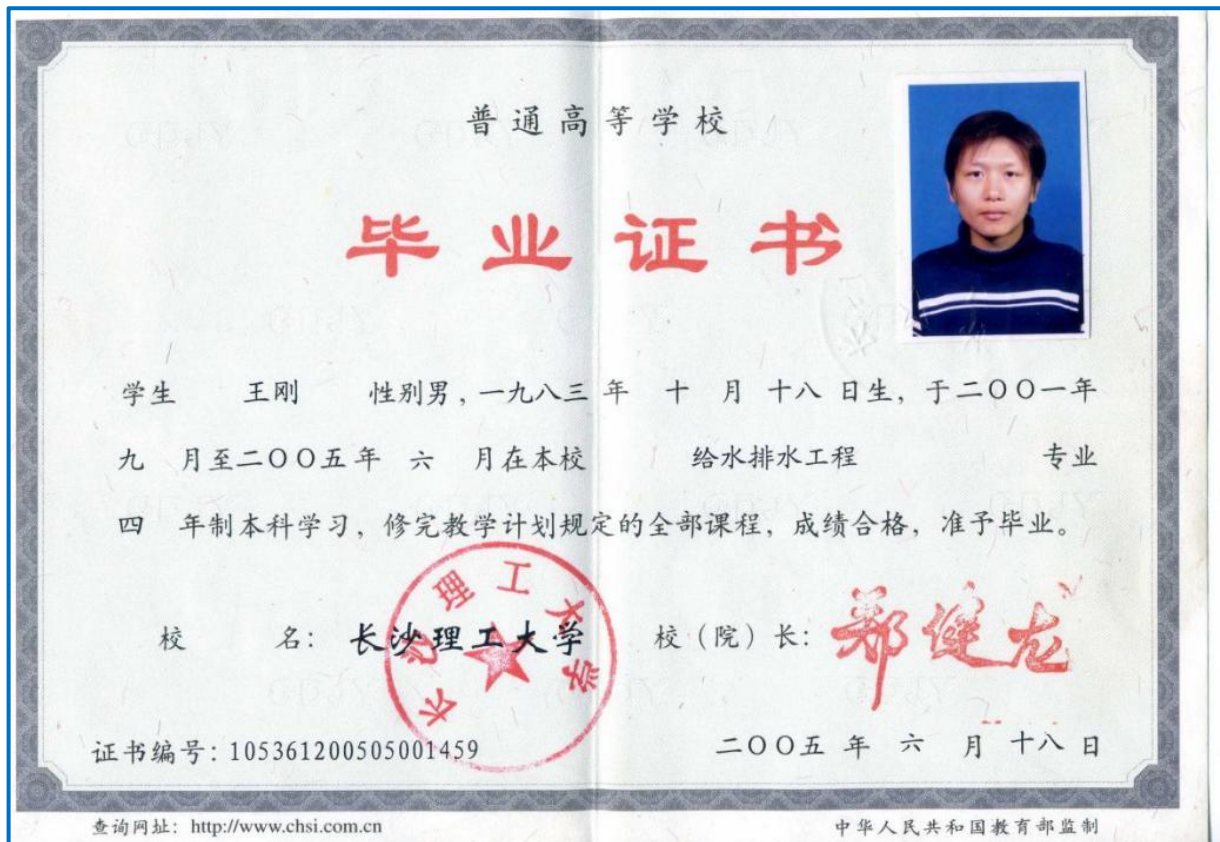 普通高等学校
毕业证书
学生 王刚 性别男，一九八三 年 十 月 十八 日生，于二〇〇一年
九 月至二〇〇五年 六 月在本校 给水排水工程 专业
四 年制本科学习，修完教学计划规定的全部课程，成绩合格，准予毕业。
校 名：长沙理工大学 校（院）长：郑健龙
长沙理工大学
证书编号：105361200505001459 二〇〇五 年 六 月 十八 日
查询网址：http://www.chsi.com.cn 中华人民共和国教育部监制